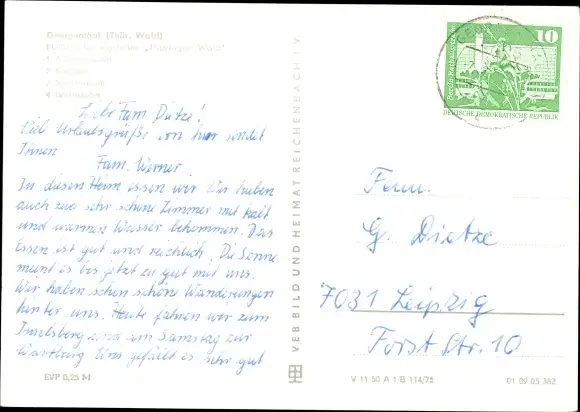 Georgenthal (Thür. Wald)
Liebe Fam. Dietze!
Viel Urlaubsgrüße von hier sendet
Ihnen
Fam. Werner.
In diesem Heim essen wir. Wir haben
auch zwei sehr schöne Zimmer mit kalt
und warmen Wasser bekommen. Das
Essen ist gut und reichlich. Die Sonne
meint es bis jetzt zu gut mit uns.
Wir haben schon schöne Wanderungen
hinter uns. Heute fahren wir zum
Inselsberg und am Samstag zur
Wartburg. Uns gefällt es sehr gut
EVP 0,25 M
VEB BILD UND HEIMAT REICHENBACH I. V.
10
DEUTSCHE DEMOKRATISCHE REPUBLIK
Fam.
G. Dietze
7031 Leipzig
Forststr. 10
V 11 50 A 1/B 114/75
01 09 05 362